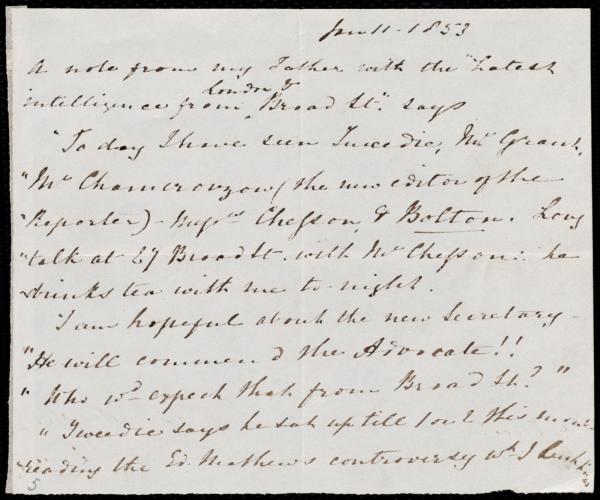 Jan 11 - 1853
A note from my Father with the "Latest
London &
intelligence from Broad St". says
"To day I have seen Tweedie, Mr Grant,
"Mr Chamerovzow (the new editor of the
"Reporter) - Chesson & Bolton. Long
"talk at 27 Broad St. with Mr Chesson: he
drinks tea with me to-night.
"I am hopeful about the new Secretary -
"He will commend the Advocate!!
"Who wd expect that from Broad St.?"
"Tweedie says he sat up till 1 or 2 this morn-
reading the Ed. Mathews controversy wh J
5